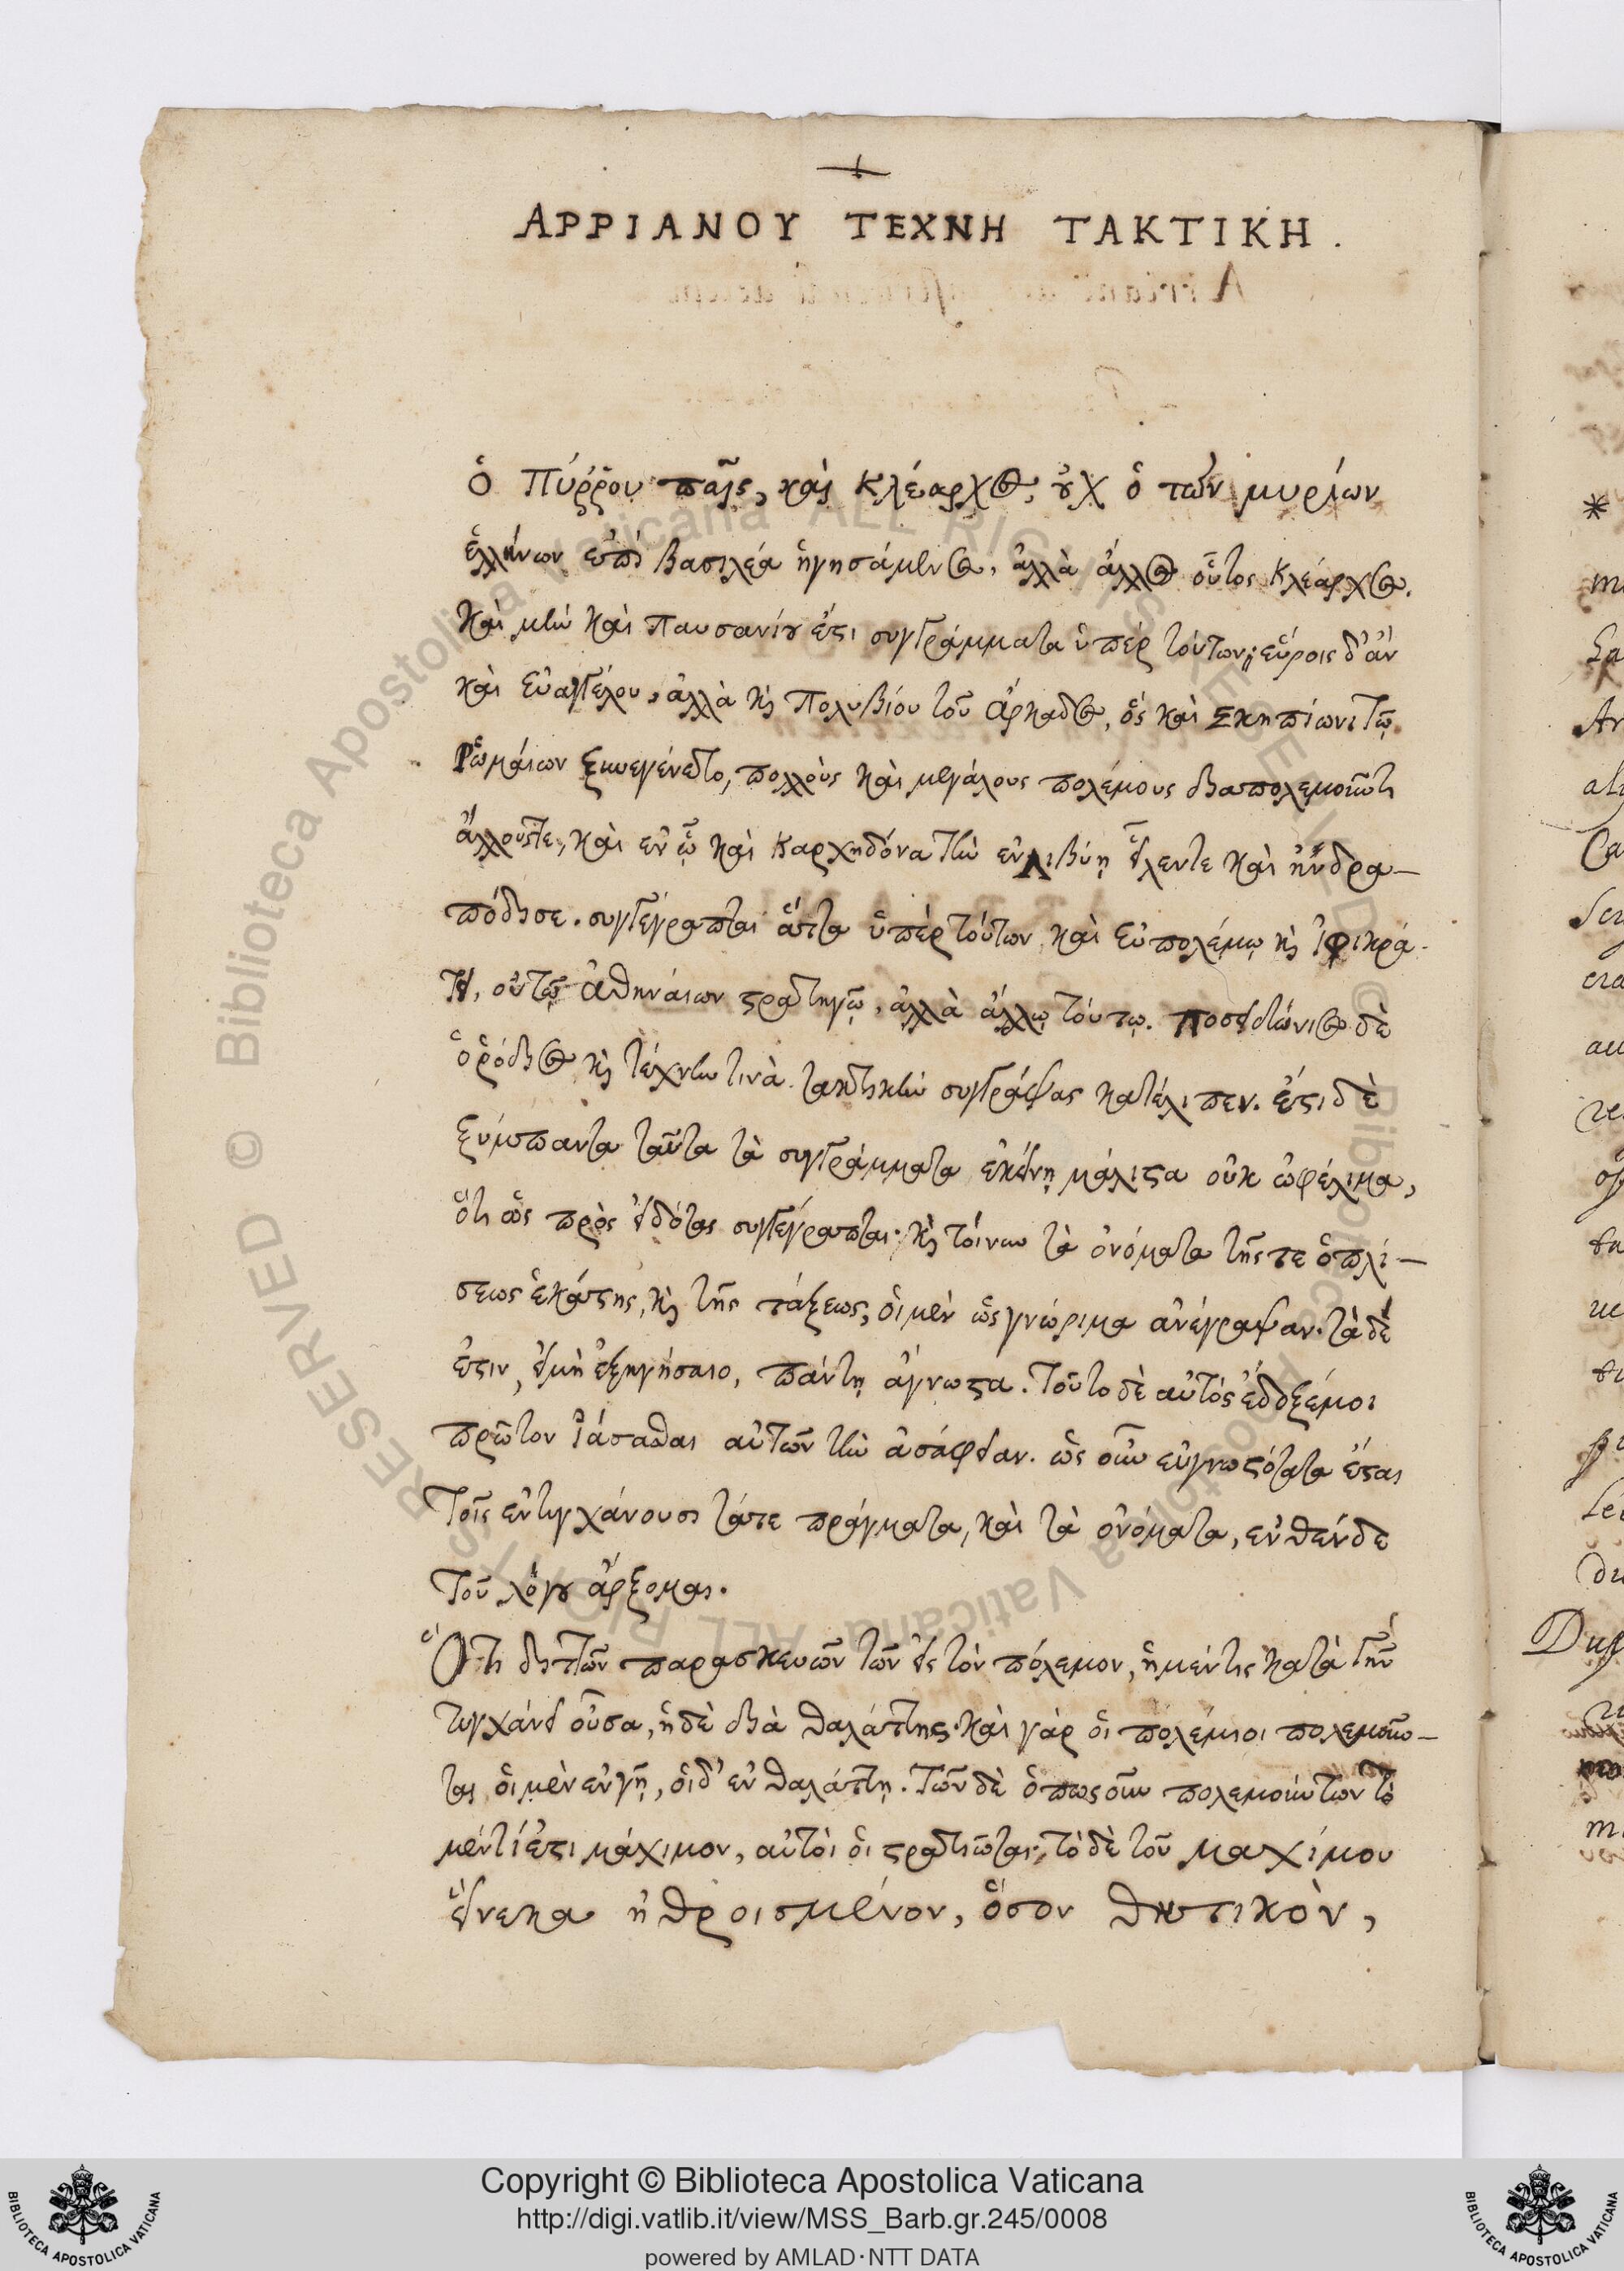 ΑΡΡΙΑΝΟΥ ΤΕΧΝΗ ΤΑΚΤΙΚΗ.
ὁ Πύῤῥου παῖς, καὶ Κλέαρχος, οὐχ ὁ τῶν μυρίων
ἑλλήνων ἐπὶ βασιλέα ἡγησάμενος, ἀλλὰ ἄλλος οὗτος Κλέαρχος.
καὶ μὴν καὶ Παυσανίου ἔστι συγγράμματα ὑπὲρ τούτων· εὕροις δ' ἂν
καὶ Εὐαγγέλου, ἀλλὰ καὶ Πολυβίου τοῦ ἀρκάδος, ὃς καὶ Σκηπίωνι τῷ
Ῥωμάιων ξυνεγένετο, πολλοὺς καὶ μεγάλους πολέμους διαπολεμοῦντι
ἄλλουστε, καὶ ἐν ᾧ καὶ Καρχηδόνα τὴν ἐν Λιβύῃ εἷλέντε καὶ ἠνδρα-
πόδισε. συγγέγραπται ἅττα ὑπὲρ τούτων καὶ Εὐπολέμῳ καὶ Ἰφικρά-
τει, οὐ τῷ Ἀθηνάιων στρατηγῷ, ἀλλὰ ἄλλῳ τούτῳ. Ποσειδώνιος δὲ
ὁ ῥόδιος καὶ τέχνην τινὰ τακτικὴν συγγράψας κατέλιπεν. ἔστι δὲ
ξύμπαντα ταῦτα τὰ συγγράμματα ἐκείνῃ μάλιστα οὐκ ὠφέλιμα,
ὅτι ὡς πρὸς εἰδότας συγγέγραπται· καὶ τοίνυν τὰ ὀνόματα τῆς τε ὁπλί-
σεως ἑκάστης, καὶ τῆς τάξεως, οἱ μὲν ὡς γνώριμα ἀνέγραψαν. τὰ δέ
ἐστιν, εἰ μὴ ἐξηγήσαιο, πάντῃ ἄγνωστα. Τοῦτο δὲ αὐτὸς ἔδοξέ μοι
πρῶτον ἰάσασθαι αὐτῶν τὴν ἀσάφειαν. ὡς οὖν εὐγνωστότατα ἔσται
Τοῖς ἐντυγχάνουσι τάτε πράγματα, καὶ τὰ ὀνόματα, ἐνθένδε
Τοῦ λόγου ἄρξομαι.
Ὅτι δὴ τῶν παρασκευῶν τῶν εἰς τὸν πόλεμον, ἡ μέν τις κατὰ γῆν
τυγχάνει οὖσα, ἡ δὲ διὰ θαλάττης. καὶ γὰρ οἱ πολέμιοι πολεμοῦν-
ται οἱ μὲν ἐν γῇ, οἱ δ' ἐν θαλάττῃ. τῶν δὲ ὅπως οὖν πολεμούντων τὸ
μέν τί ἐστι μάχιμον, αὐτοὶ οἱ στρατιῶται· τὸ δὲ τοῦ μαχίμου
εἵνεκα ἠθροισμένον, ὅσον θητικὸν,
Copyright © Biblioteca Apostolica Vaticana
http://digi.vatlib.it/view/MSS_Barb.gr.245/0008
powered by AMLAD·NTT DATA